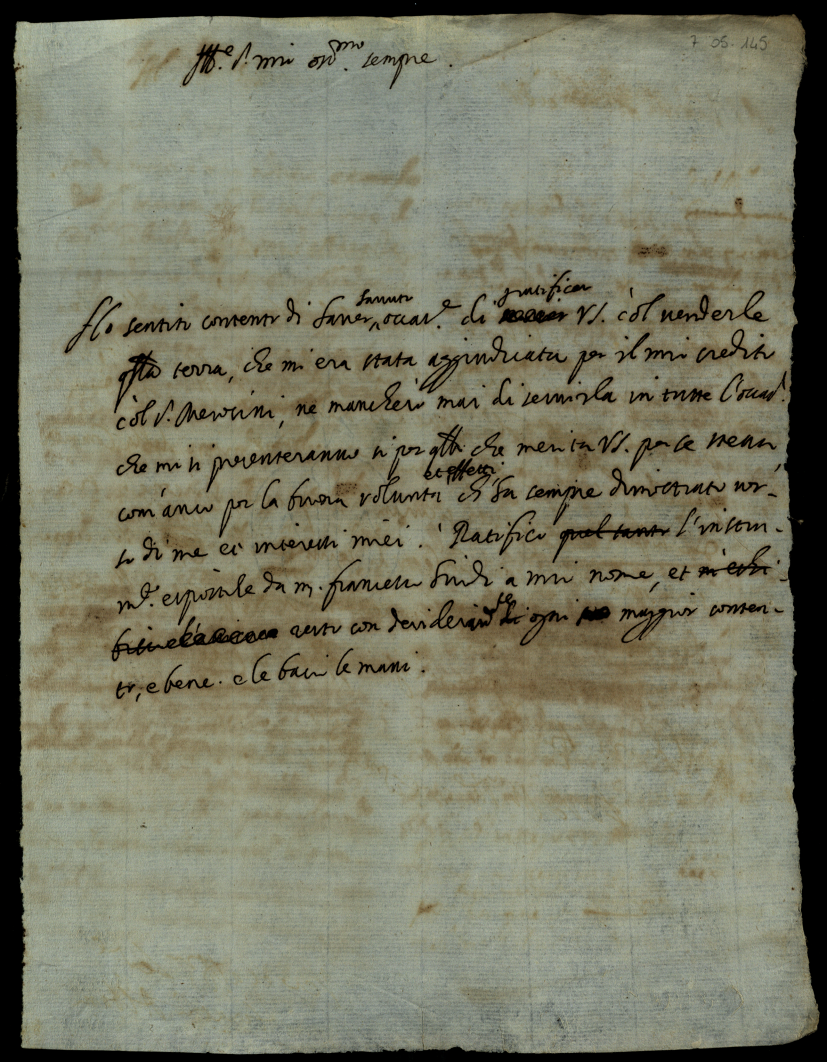 7 05. 145
Ill.e S.r mio oss.mo sempre.
Ho sentito contento di haver havuto occas.e di gratificar VS. còl venderle
q.lla terra, che mi era stata aggiudicata per il mio credito
còl S.r, ne mancherò mai di servirla in tutte l'occas.i
che mi si presenteranno si per q.llo che merita VS. per se stessa,
com'anco per la buona volontà et effetti, ch'ha sempre dimostrato ver-
so di me et interessi miei. Ratifico quel tanto l'instru-
m.to espostole da m. Francesco Guidi a mio nome, et
resto con desiderarle ogni maggior conten-
to, e bene. e le bacio le mani.